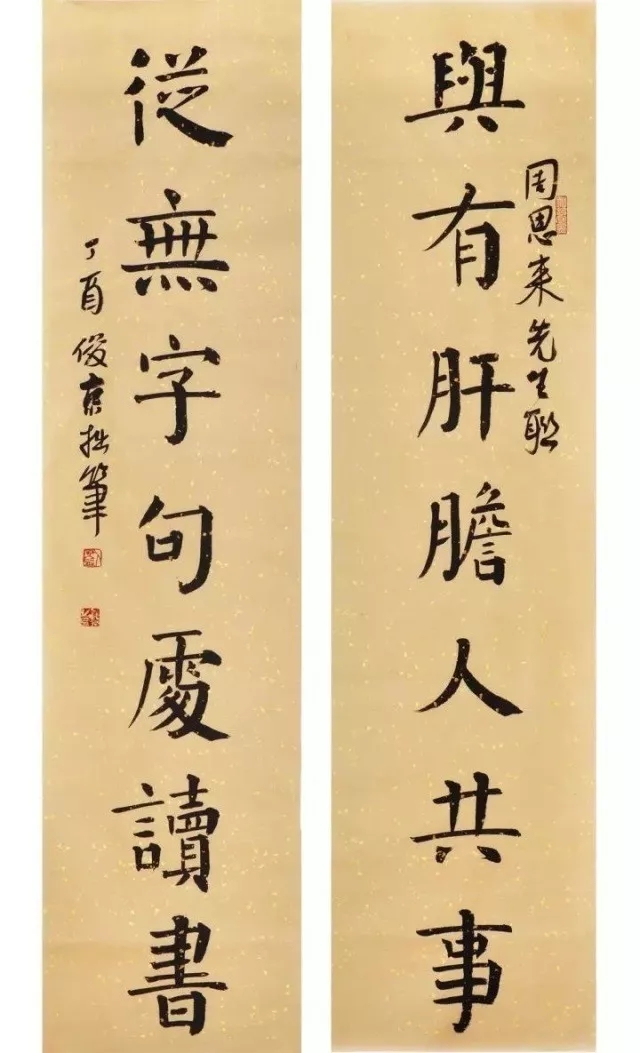 與有肝膽人共事
周恩来先生聯
從無字句處讀書
丁酉俊京拙筆